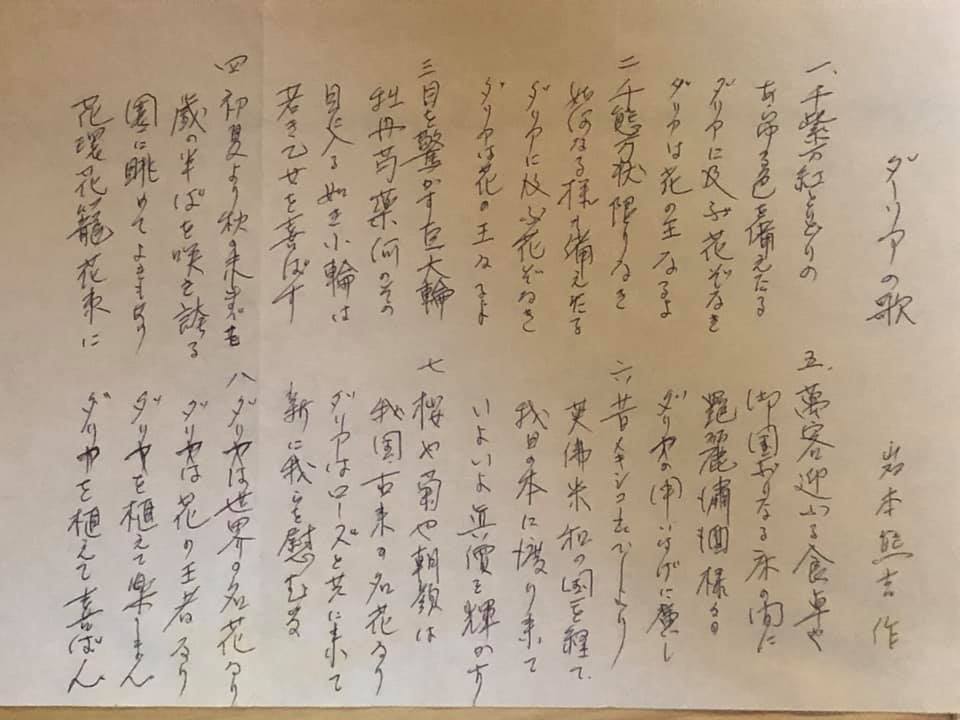 ダーリアの歌
岩本熊吉作
一、千紫万紅とりどりの
あらゆる色を備えたる
ダリヤに及ぶ花ぞなき
ダリヤは花の王なるよ
二 千態万状限りなき
如何なる様も備えたる
ダリヤに及ぶ花ぞなき
ダリヤは花の王なるよ
三 目を驚かす巨大輪
牡丹芍薬何のその
豆に入る如き小輪は
若き乙女を喜ばす
四 初夏より秋の末までも
歳の半ばを咲き誇る
園に眺めてよきものを
花環花籠花束に
五、萬客迎いる食卓や
御国ぶりなる床の間に
艶麗瀟洒様々の
ダリヤの用いげに広し
六 昔メキシコを出でしより
英佛米和の国を経て
我日の本に渡り来て
いよいよ真價を輝かす
七 桜や菊や朝顔は
我国古来の名花なり
ダリヤはローズと共に来て
新に我らを慰むる
八 ダリヤは世界の名花なり
ダリヤは花の王者なり
ダリヤを植えて楽しまん
ダリヤを植えて喜ばん